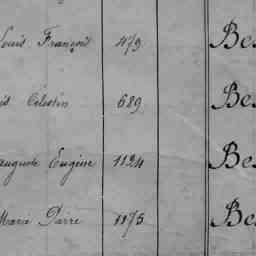 Louis François 473 Bes
is Célestin 689 Bes
Auguste Eugène 1124 Bes
Marie Pierre 1173 Bes